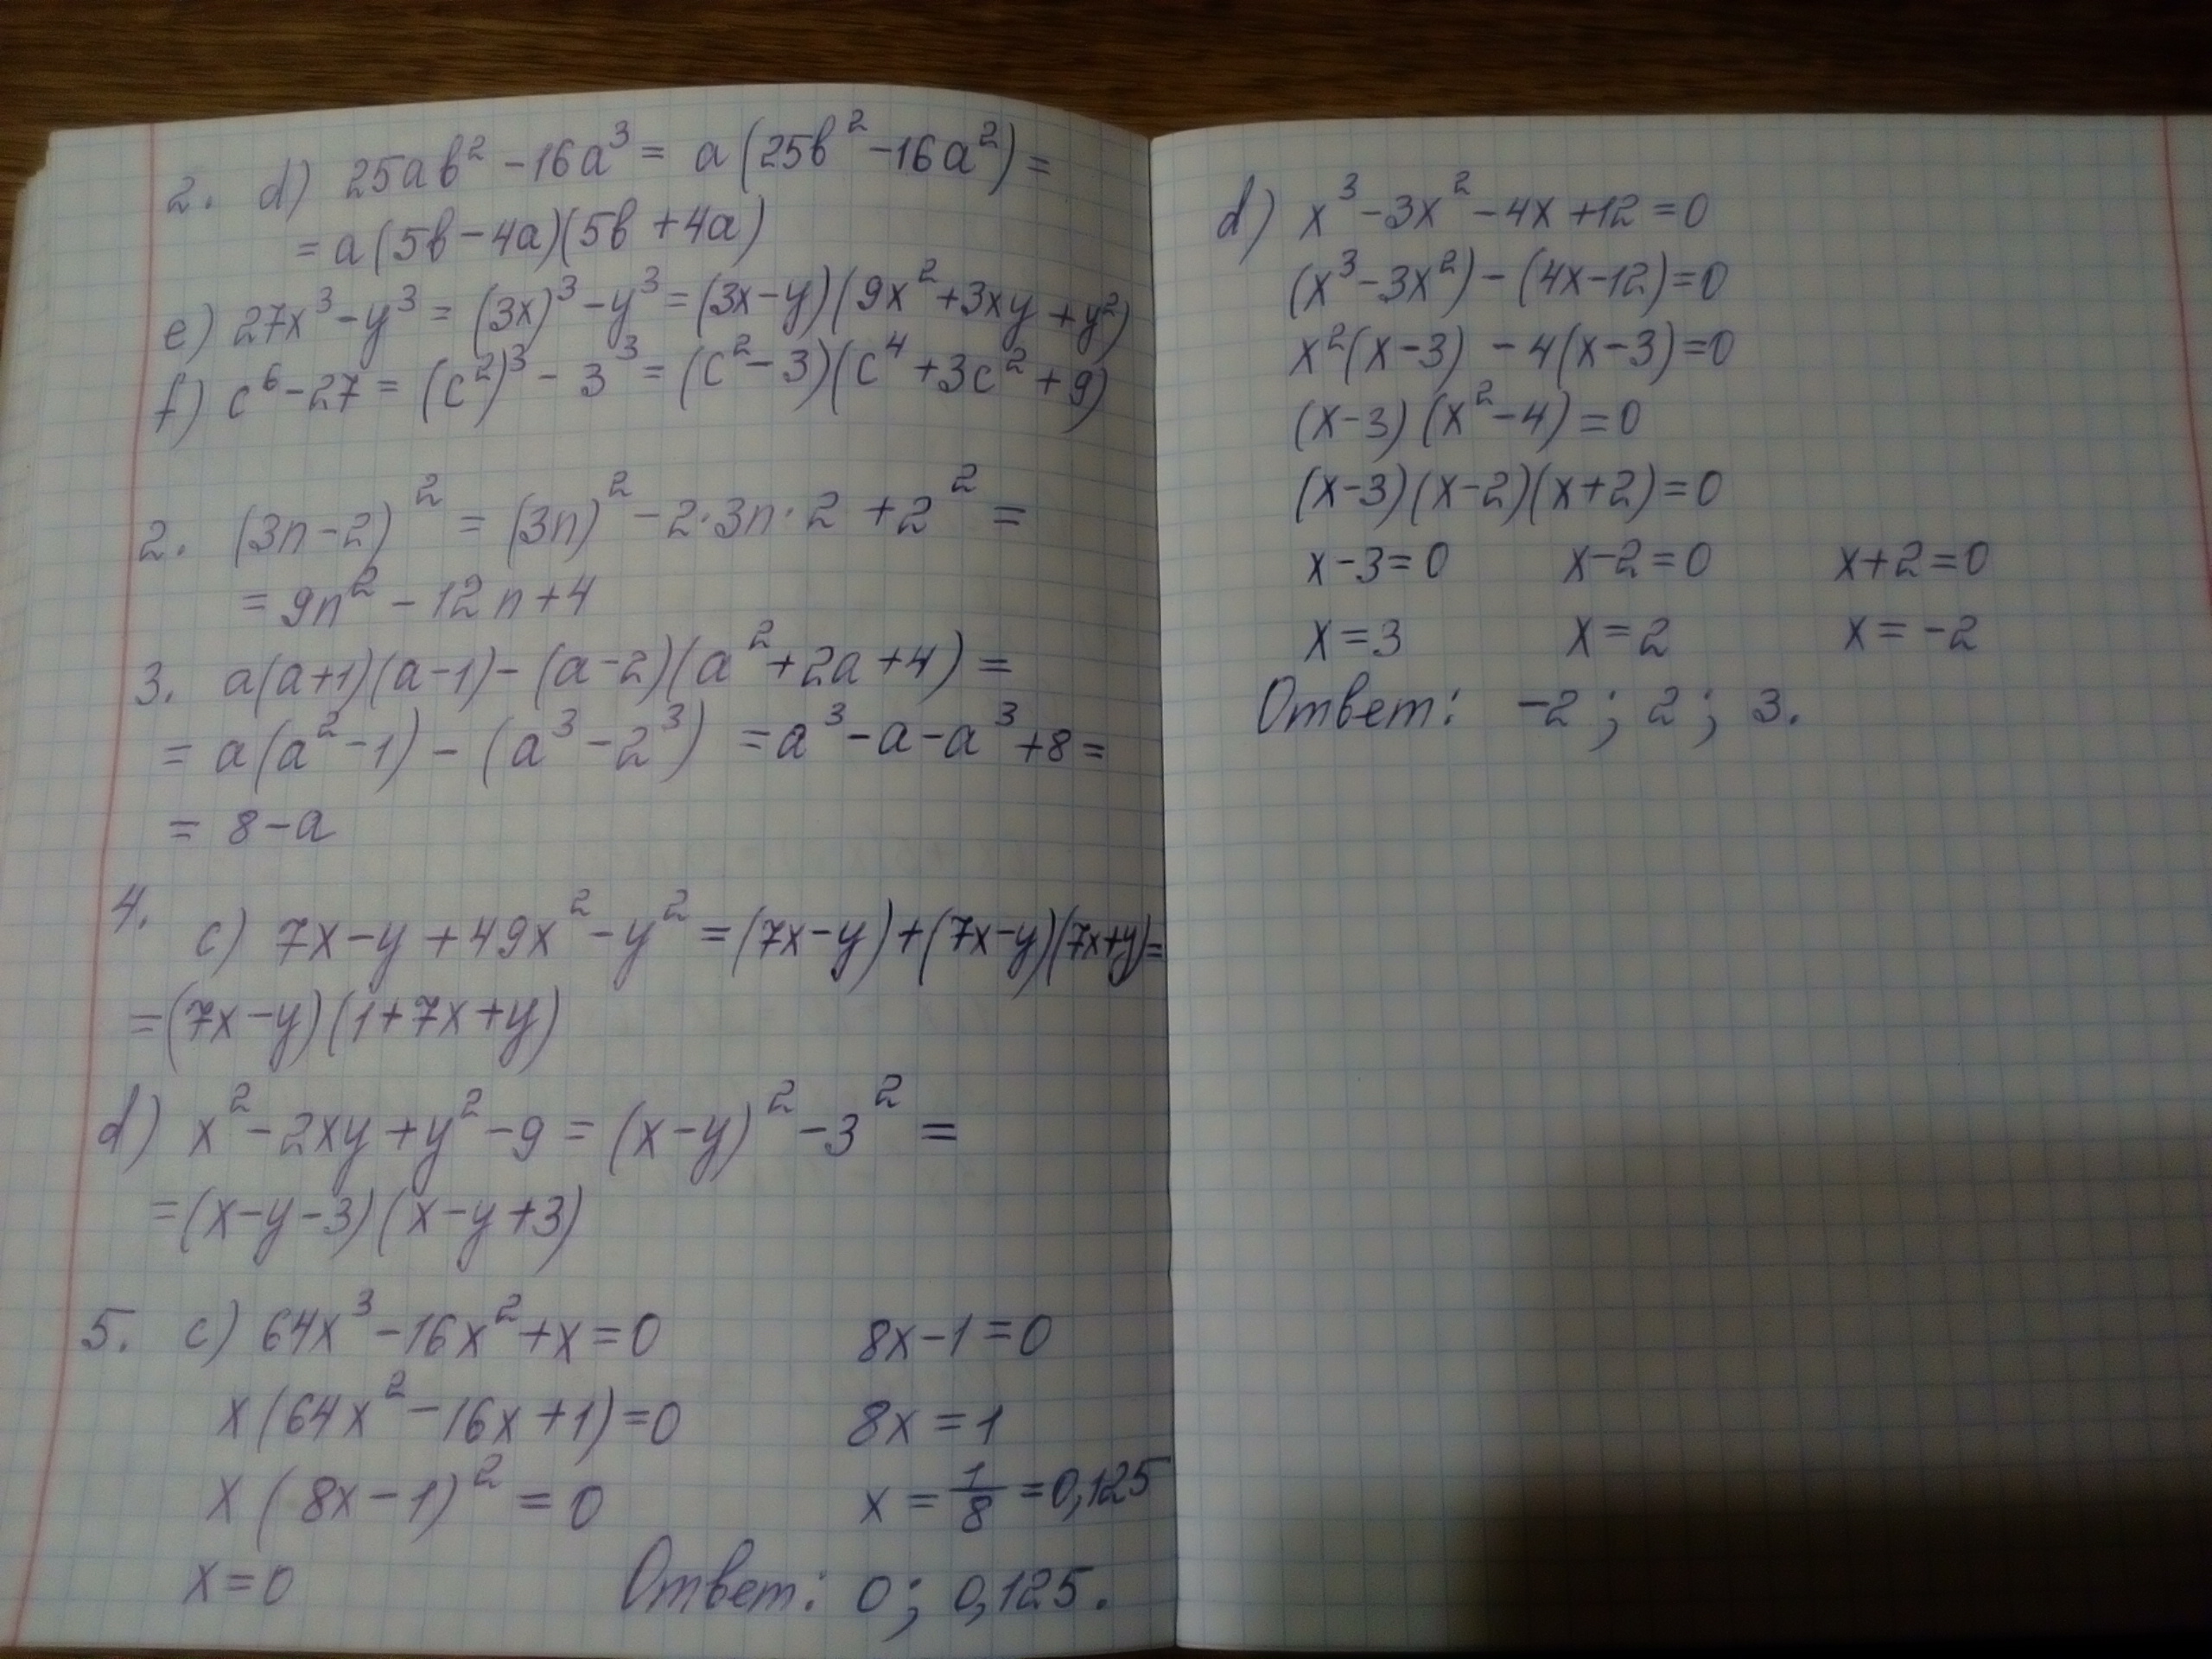 2. d) 25ab² - 16a³ = a(25b² - 16a²) =
= a(5b - 4a)(5b + 4a)
e) 27x³ - y³ = (3x)³ - y³ = (3x - y)(9x² + 3xy + y²)
f) c⁶ - 27 = (c²)³ - 3³ = (c² - 3)(c⁴ + 3c² + 9)
2. (3n - 2)² = (3n)² - 2·3n·2 + 2² =
= 9n² - 12n + 4
3. a(a+1)(a-1) - (a-2)(a² + 2a + 4) =
= a(a² - 1) - (a³ - 2³) = a³ - a - a³ + 8 =
= 8 - a
4. c) 7x - y + 49x² - y² = (7x - y) + (7x - y)(7x + y) =
= (7x - y)(1 + 7x + y)
d) x² - 2xy + y² - 9 = (x - y)² - 3² =
= (x - y - 3)(x - y + 3)
5. c) 64x³ - 16x² + x = 0
x(64x² - 16x + 1) = 0
x(8x - 1)² = 0
x = 0
8x - 1 = 0
8x = 1
x = 1/8 = 0,125
Ответ: 0; 0,125.
d) x³ - 3x² - 4x + 12 = 0
(x³ - 3x²) - (4x - 12) = 0
x²(x - 3) - 4(x - 3) = 0
(x - 3)(x² - 4) = 0
(x - 3)(x - 2)(x + 2) = 0
x - 3 = 0 x - 2 = 0 x + 2 = 0
x = 3 x = 2 x = -2
Ответ: -2; 2; 3.